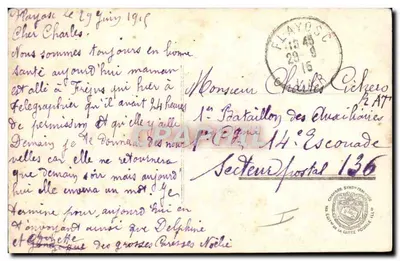 Flayosc le 29 Juin 1916
Cher Charles.
Nous sommes toujours en bonne
santé aujourd'hui maman
est allé à Fréjus qui hier a
télégraphier qu'il avait 24 heures
de permission et qu'elle y aille
Demain je te donnai des nou
velles car elle ne retournera
que demain soir mais aujourd
hui elle enverra un mot
termine pour aujourd'hui en
t'envoyant ainsi que Delphine
et que des grosses Bises Noélie
FLAYOSC
29 - 6
16
Monsieur Charles
1er Bataillon des Auxiliaires
14e Escouade
Secteur postal 136
I